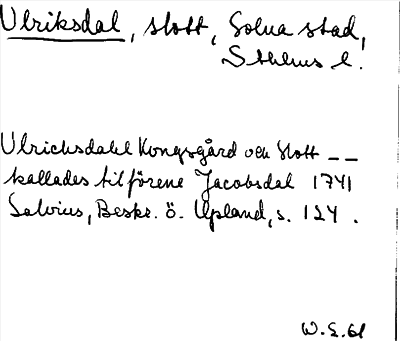 Ulriksdal, slott, Solna stad,
Sthlms l.
Ulrichsdahl Kongsgård och Slott – –
kallades tilförene Jacobsdal 1741
Salvius, Beskr. ö. Upland, s. 124 .
W.S.61